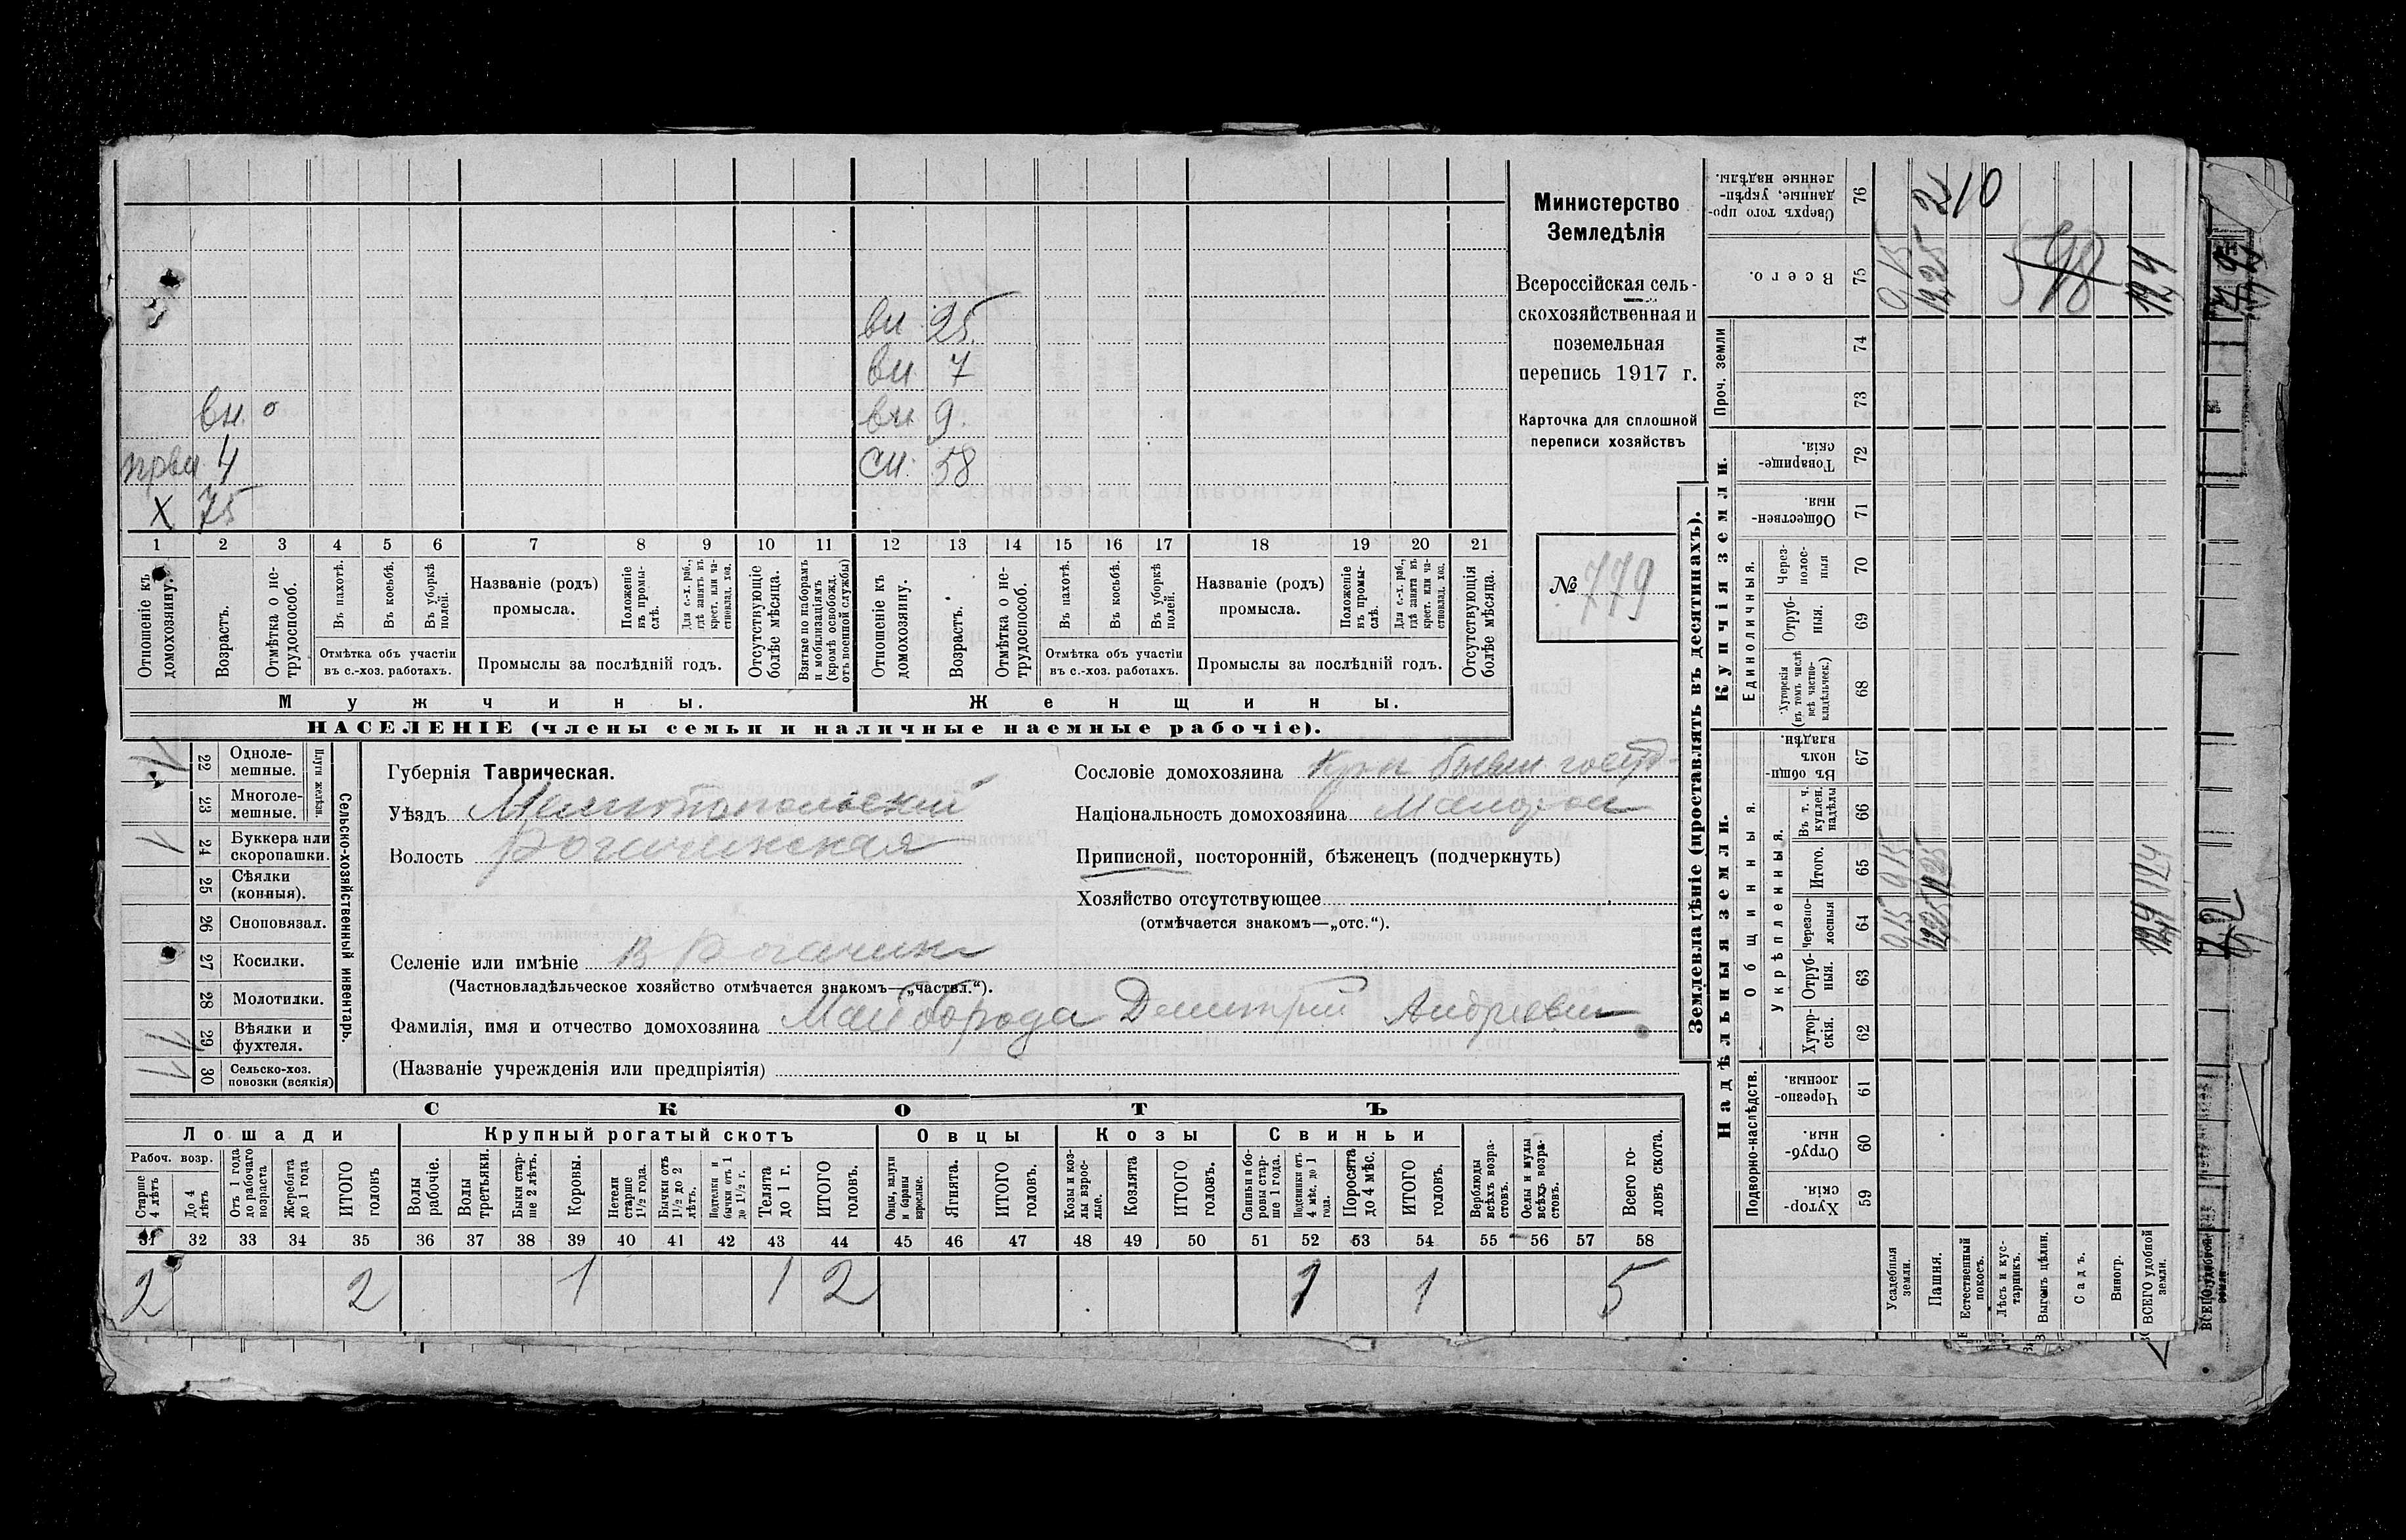 Министерство
Земледѣлія
Всероссійская сель-
скохозяйственная и
поземельная
перепись 1917 г.
Карточка для сплошной
переписи хозяйствъ
№ 779
вн 25
вн 7
вн. 0
вн 9.
4
сн. 58
Х 75
1 2 3 4 5 6 7 8 9 10 11 12 13 14 15 16 17 18 19 20 21
Отношеніе къ домохозяину.
Возрастъ.
Отмѣтка о не-трудоспособ.
Въ пахотѣ.
Въ косьбѣ.
Въ уборкѣ полей.
Отмѣтка объ участіи
въ с.-хоз. работахъ.
Названіе (родъ)
промысла.
Положеніе въ промы-слѣ.
Для с.-х. раб., гдѣ занятъ въ крест. или ча-стновлад. хоз.
Промыслы за послѣдній годъ.
Отсутствующіе болѣе мѣсяца.
Взятые по наборамъ и мобилизаціямъ (кромѣ освобожд. отъ военной службы)
Отношеніе къ домохозяину.
Возрастъ.
Отмѣтка о не-трудоспособ.
Въ пахотѣ.
Въ косьбѣ.
Въ уборкѣ полей.
Отмѣтка объ участіи
въ с.-хоз. работахъ.
Названіе (родъ)
промысла.
Положеніе въ промы-слѣ.
Для с.-х. раб., гдѣ занята въ крест. или ча-стновлад. хоз.
Промыслы за послѣдній годъ.
Отсутствующія болѣе мѣсяца.
Мужчины.
Женщины.
НАСЕЛЕНІЕ (члены семьи и наличные наемные рабочіе).
Сельско-хозяйственный инвентарь.
Плуги желѣзн.
22 Одноле-мешные. 1
23 Многоле-мешные.
24 Буккера или скоропашки. 1
25 Сѣялки (конныя).
26 Сноповязал.
27 Косилки.
28 Молотилки.
29 Вѣялки и фухтеля. 1
30 Сельско-хоз. повозки (всякія) 1
Губернія Таврическая.
Уѣздъ Мелитопольский
Волость Рогачикская
Селеніе или имѣніе В Рогачик
(Частновладѣльческое хозяйство отмѣчается знакомъ—„частвл.“).
Фамилія, имя и отчество домохозяина Майборода Дмитрий Андреевич
(Названіе учрежденія или предпріятія)
Сословіе домохозяина Крест бывш госуд
Національность домохозяина Малорос
Приписной, посторонній, бѣженецъ (подчеркнуть)
Хозяйство отсутствующее
(отмѣчается знакомъ—„отс.“).
СКОТЪ
Лошади
Рабоч. возр.
Старше 4 лѣтъ
До 4 лѣтъ
Отъ 1 года до рабочаго возраста
Жеребята до 1 года
ИТОГО головъ
Крупный рогатый скотъ
Волы рабочіе.
Волы третьяки.
Быки стар-ше 2 лѣтъ.
Коровы.
Нетели старше 1½ года.
Бычки отъ 1½ до 2 лѣтъ.
Подтелки и бычки отъ 1 до 1½ г.
Телята до 1 г.
ИТОГО головъ.
Овцы
Овцы, валухи и бараны взрослые.
Ягнята.
ИТОГО головъ.
Козы
Козы и коз-лы взрос-лые.
Козлята
ИТОГО головъ.
Свиньи
Свиньи и бо-ровы стар-ше 1 года.
Подсвинки отъ 4 мѣс. до 1 года.
Поросята до 4 мѣс.
ИТОГО головъ.
Верблюды всѣхъ возра-стовъ.
Ослы и мулы всѣхъ возра-стовъ.
Всего го-ловъ скота.
31 32 33 34 35 36 37 38 39 40 41 42 43 44 45 46 47 48 49 50 51 52 53 54 55 56 57 58
2 2 1 1 2 1 1 5
Землевладѣніе (проставлять въ десятинахъ).
Надѣльныя земли.
Подворно-наслѣдств.
Хутор-скія. 59
Отруб-ныя. 60
Черезпо-лосныя. 61
Общинныя.
Укрѣпленныя.
Хутор-скія. 62
Отруб-ныя. 63
Черезпо-лосныя 64
Итого. 65
Въ т. ч. куплен. надѣлы 66
Въ общи-номъ владѣн. 67
Купчія земли.
Единоличныя.
Хуторскія (въ томъ числѣ всѣ частно-владѣльческ.) 68
Отруб-ныя. 69
Через-полос-ныя 70
Обществен-ныя 71
Товарище-скія. 72
Проч. земли
73 74
Всего. 75
Сверхъ того про-данные, укрѣп-ленные надѣлы. 76
Усадебныя земли. 0,15 0,15 0,15
Пашня.
Естественный покосъ.
Лѣсъ и кус-тарникъ.
Выгонъ цѣлин.
Садъ.
Виногр.
ВСЕГО удобной земли.
210
598
ВСЕГО удобной земли